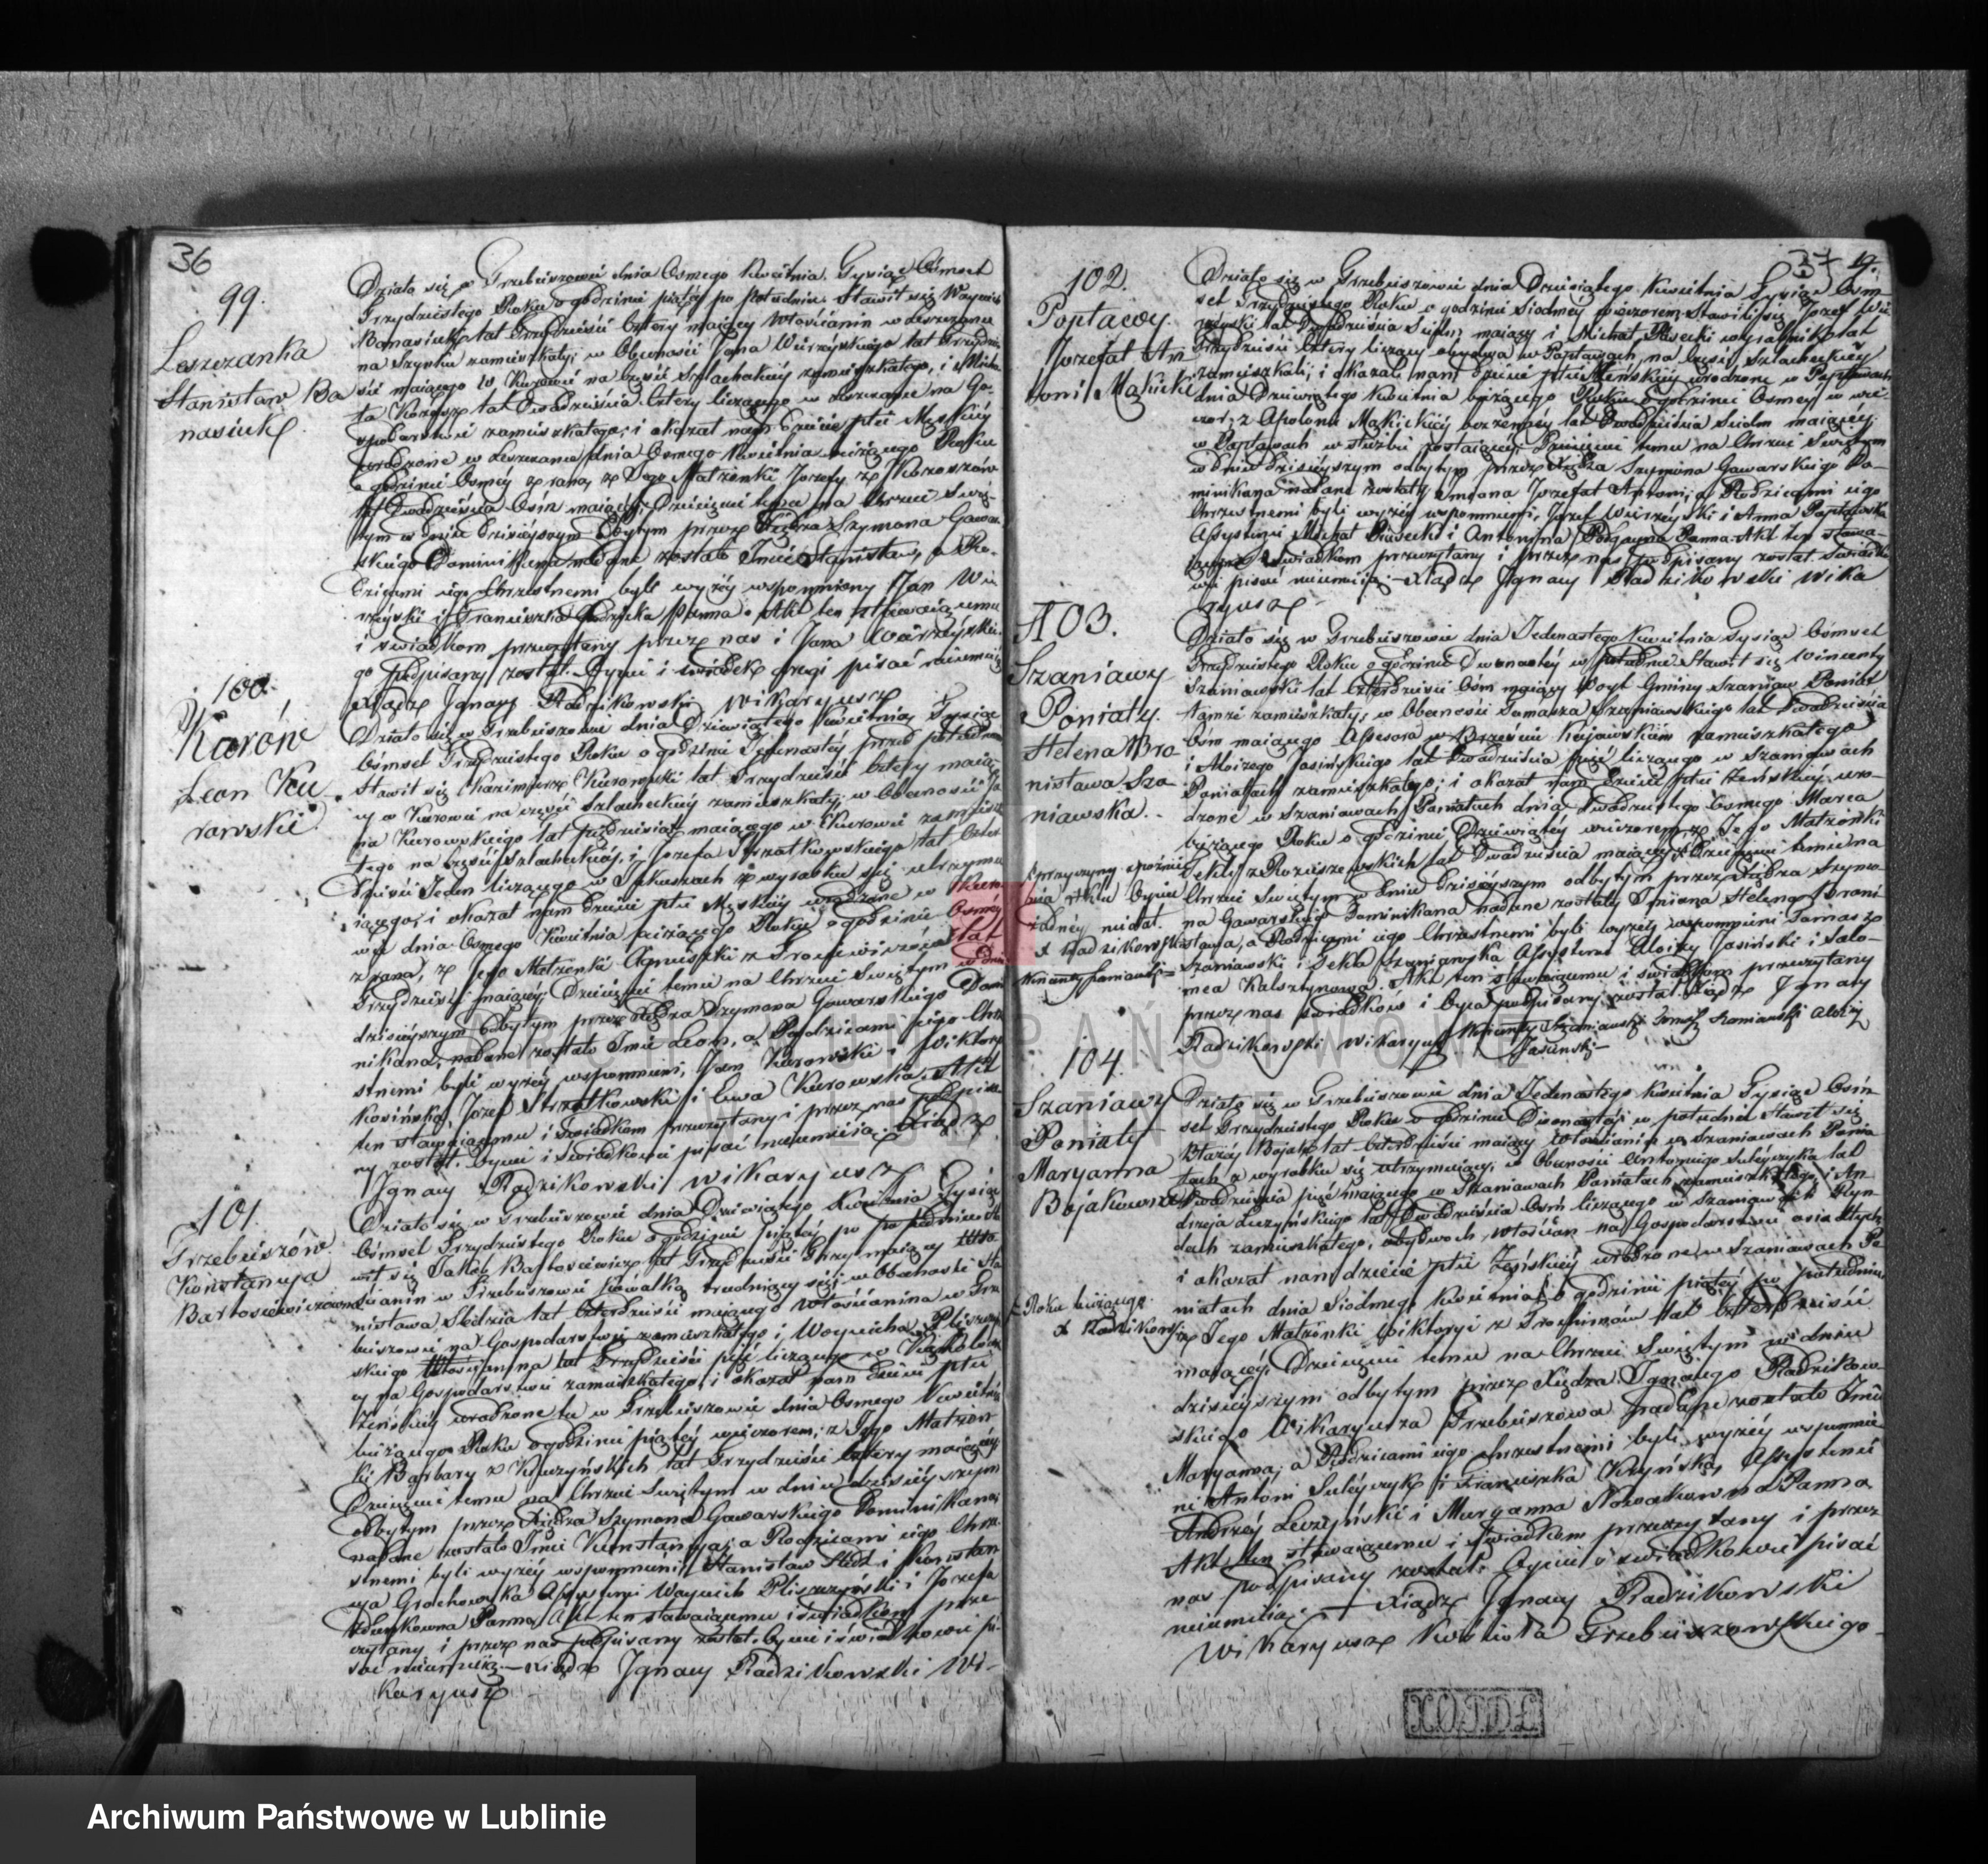 36
99.
Leszczanka
Stanisław Ba
nasiuk
Działo się w Trzebieszowie dnia Osmego Kwietnia, Tysiąc Osmset
Trzydziestego Roku o godzinie piątej po Południu. Stawił się Woyciech
Banasiuk lat Trzydzieści Cztery maiący Włościanin w Leszczance
na Szynku zamieszkały; w Obecności Jana Wierzyskiego lat Trzydzie
ści maiącego w Kurowie na części Szlacheckiey zamieszkałego, i Micha
ła lat Dwadzieścia Cztery liczącego w Leszczance na Go-
spodarstwie zamieszkałego; i okazał nam dziecie płci Męskiey
urodzone w Leszczance dnia Osmego Kwietnia bieżącego Roku
o godzinie Osmey z rana, z Jego Małżonki Jozefy z
lat Dwadzieścia Ośm maiącey. Dziecięciu temu na Chrzcie Swię-
tym w dniu dzisieyszym odbytym przez Xiędza Szymona Gawar
skiego Dominikana nadane zostało Imie Stanisław, a Ro-
dzicami iego Chrzestnemi byli wyżey wspomniony Jan Wie
rzyski i Franciszka Panna. Akt ten stawaiącemu
i świadkom przeczytany przez nas i Jana Wierzyskie-
go podpisany został. Oyciec i świadek drugi pisać nieumieią
Xiądz Ignacy Radzikowski Wikaryusz
100.
Kurów
Leon Ku
rowski
Działo się w Trzebieszowie dnia Dziewiątego Kwietnia Tysiąc
Ośmset Trzydziestego Roku o godzinie Jedenastey przed południem
Stawił się Kazimierz Kurowski lat Trzydzieści Cztery maią
cy w Kurowie na części Szlacheckiey zamieszkały, w Obecności Ja
na Kurowskiego lat Pięćdziesiąt maiącego w Kurowie zamieszka
łego na części szlacheckiey, i Jozefa Strzałkowskiego lat Czter
dzieści Jeden liczącego w z wyrobku się utrzymu
iącego; i okazał nam dziecie płci Męskiey urodzone w Kuro
wie dnia Osmego Kwietnia bieżącego Roku o godzinie Osmey
z rana, z Jego Małżonki Agnieszki z lat
Trzydzieści maiącey. Dziecięciu temu na Chrzcie Swiętym w dniu
dzisieyszym odbytym przez Xiędza Szymona Gawarskiego Domi
nikana, nadane zostało Imie Leon, a Rodzicami iego Chrze
stnemi byli wyżey wspomnieni, Jan Kurowski i Wiktorya
Kosińska, Jozef Strzałkowski i Ewa Kurowska. Akt
ten stawaiącemu i świadkom przeczytany i przez nas podpisa
ny został. Oyciec i świadkowie pisać nieumieią. Xiądz
Ignacy Radzikowski Wikaryusz
101.
Trzebieszów
Konstancya
Bartosiewiczowna
Działo się w Trzebieszowie dnia Dziewiątego Kwietnia Tysiąc
Ośmset Trzydziestego Roku o godzinie Piątey po południu Sta
wił się Jakób Bartosiewicz lat Trzydzieści Trzy maiący Wło
ścianin w Trzebieszowie trudniący się; w Obecności Sta
nisława Sledzia lat Czterdzieści maiącego Włościanina w Trze
bieszowie na Gospodarstwie zamieszkałego i Woyciecha Pliszczyń
skiego Włościanina lat Trzydzieści pięć liczącego w
cy na Gospodarstwie zamieszkałego; i okazał nam dziecie płci
Żeńskiey urodzone tu w Trzebieszowie dnia Osmego Kwietnia
bieżącego Roku o godzinie piątey wieczorem; z Jego Małżon
ki Barbary z Kuczyńskich lat Trzydzieści Cztery maiącey
Dziecięciu temu na Chrzcie Swiętym w dniu dzisieyszym
odbytym przez Xiędza Szymona Gawarskiego Dominikana
nadane zostało Imie Konstancya; a Rodzicami iego Chrze
stnemi byli wyżey wspomnieni, Stanisław Sledź i Konstan
cya Grochowska Assystenci Woyciech Pliszczyński i Jozefa
Panna, Akt ten stawaiącemu i świadkom prze
czytany i przez nas podpisany został. Oyciec i świadkowie pi-
sać nieumieią. — Xiądz Ignacy Radzikowski Wi-
karyusz
37 19.
102.
Popławy.
Jozefat An
toni Mąkicki
Działo się w Trzebieszowie dnia Dziesiątego Kwietnia Tysiąc Ośm
set Trzydziestego Roku o godzinie Siodmey wieczorem. Stawili się Jozef Wie
rzyski lat Dwadzieścia Siedm maiący i Michał Piasecki wyrobnik lat
Trzydzieści Cztery liczący obydwa w Popławach, na części Szlacheckiey
zamieszkali; i okazali nam dziecie płci Męskiey urodzone w Popławach
dnia Dziewiątego Kwietnia bieżącego Roku o godzinie Osmey w wie
czor, z Apolonii Mąkickiey bezżenney lat Dwadzieścia Siedm maiącey
w Popławach w służbie zostaiącey. Dziecięciu temu na Chrzcie Swiętym
w dniu dzisieyszym odbytym przez Xiędza Szymona Gawarskiego Do-
minikana nadane zostały Imiona Jozefat Antoni, a Rodzicami iego
Chrzestnemi byli wyżey wspomnieni, Jozef Wierzyski i Anna Popławska
Assystenci Michał Piasecki i Antonina Panna. Akt ten stawa-
iącym i świadkom przeczytany i przez nas podpisany został. Świadko
wie pisać nieumieią. — Xiądz Ignacy Radzikowski Wika
ryusz —
103.
Szaniawy
Poniaty.
Helena Bro
nisława Sza-
niawska.
Działo się w Trzebieszowie dnia Jedenastego Kwietnia Tysiąc Ośmset
Trzydziestego Roku o godzinie Dwunastey w południe Stawił się Wincenty
Szaniawski lat Czterdzieści Ośm maiący Woyt Gminy Szaniaw Poniat
tamże zamieszkały; w Obecności Tomasza Szaniawskiego lat Dwadzieścia
Ośm maiącego Assesora w Brześciu Kujawskim zamieszkałego
i Aloizego Jasińskiego lat Dwadzieścia pięć liczącego w Szaniawach
Poniatach zamieszkałego; i okazał nam dziecie płci Żeńskiey uro-
dzone w Szaniawach Poniatach dnia Dwudziestego Osmego Marca
bieżącego Roku o godzinie Dziewiątey wieczorem z Jego Małżonki
Tekli z lat Dwadzieścia maiącey. Dziecięciu temu na
Chrzcie Swiętym w dniu dzisieyszym odbytym przez Xiędza Szymo
na Gawarskiego Dominikana nadane zostały Imiona Helena Broni
sława, a Rodzicami iego Chrzestnemi byli wyżey wspomnieni Tomasz
Szaniawski i Tekla Szaniawska Assystenci Aloizy Jasiński i Salo-
mea Kalsztynowa. Akt ten stawaiącemu i świadkom przeczytany
przez nas świadków i Oyca podpisany został. Xiądz Ignacy
Radzikowski Wikaryusz Wincenty Szaniawski Tomasz Szaniawski Aloizy
Jasinski —
przyczyny spóźnie
nia Aktu Oyciec
żadney niedał.
X Radzikowski
Wincenty Szaniawski
104.
Szaniawy
Poniaty
Maryanna
Bojakowna
Działo się w Trzebieszowie dnia Jedenastego Kwietnia Tysiąc Ośm-
set Trzydziestego Roku o godzinie Dwunastey w południe Stawił się
Błażey Bojak lat Czterdzieści maiący Włościanin w Szaniawach Ponia
tach z wyrobku się utrzymuiący, w Obecności Antoniego Suleyczyka lat
Dwadzieścia pięć maiącego w Szaniawach Poniatach zamieszkałego, i An-
drzeja Leszczyńskiego lat Dwadzieścia Ośm liczącego w Szaniawach
zamieszkałego, obydwoch Włościan na Gospodarstwie osiadłych
i okazał nam dziecie płci Żeńskiey urodzone w Szaniawach Po
niatach dnia Siodmego Kwietnia o godzinie piątey po południu,
z Jego Małżonki Wiktoryi z lat Czterdzieści
maiącey. Dziecięciu temu na Chrzcie Swiętym w dniu
dzisieyszym odbytym przez Xiędza Ignacego Radzikow-
skiego Wikaryusza Trzebieszowa nadane zostało Imie
Maryanna; a Rodzicami iego Chrzestnemi byli wyżey wspomnie
ni Antoni Suleyczyk i Franciszka Assystenci
Andrzey Leszczyński i Maryanna Nowakowna Panna
Akt ten stawaiącemu i świadkom przeczytany i przez
nas podpisany został. Oyciec i świadkowie pisać
nieumieią. — Xiądz Ignacy Radzikowski
Wikaryusz Kościoła Trzebieszowskiego
Roku bieżącego.
X Radzikowski
ARCHIWUM PAŃSTWOWE
W LUBLINIE
Archiwum Państwowe w Lublinie